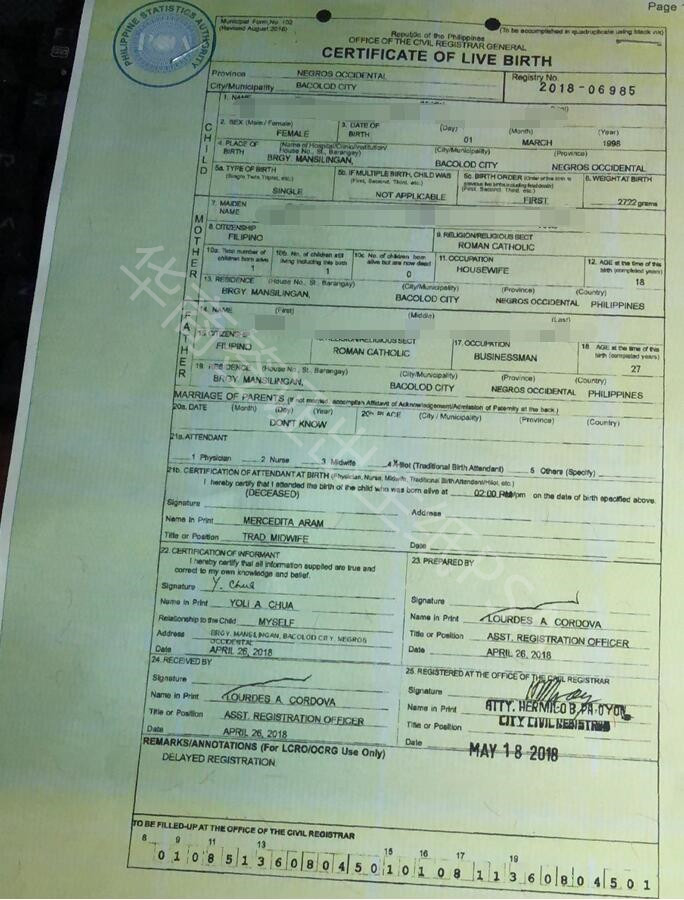 Page
PHILIPPINE STATISTICS AUTHORITY
Municipal Form No. 102
(Revised August 2016)
Republic of the Philippines
OFFICE OF THE CIVIL REGISTRAR GENERAL
(To be accomplished in quadruplicate using black ink)
CERTIFICATE OF LIVE BIRTH
Province NEGROS OCCIDENTAL
City/Municipality BACOLOD CITY
Registry No.
2018-06985
CHILD
1. NAME
2. SEX (Male / Female)
FEMALE
3. DATE OF BIRTH (Day) (Month) (Year)
01 MARCH 1998
4. PLACE OF BIRTH (Name of Hospital/Clinic/Institution/
House No., St., Barangay) (City/Municipality) (Province)
BRGY. MANSILINGAN, BACOLOD CITY NEGROS OCCIDENTAL
5a. TYPE OF BIRTH
(Single, Twin, Triplet, etc.)
SINGLE
5b. IF MULTIPLE BIRTH, CHILD WAS
(First, Second, Third, etc.)
NOT APPLICABLE
5c. BIRTH ORDER
(First, Second, Third, etc.)
FIRST
6. WEIGHT AT BIRTH
2722 grams
MOTHER
7. MAIDEN NAME
8. CITIZENSHIP
FILIPINO
9. RELIGION/RELIGIOUS SECT
ROMAN CATHOLIC
10a. Total number of children born alive
1
10b. No. of children still living including this birth
1
10c. No. of children born alive but are now dead
0
11. OCCUPATION
HOUSEWIFE
12. AGE at the time of this birth (completed years)
18
13. RESIDENCE (House No., St., Barangay) (City/Municipality) (Province) (Country)
BRGY. MANSILINGAN, BACOLOD CITY NEGROS OCCIDENTAL PHILIPPINES
FATHER
14. NAME (First) (Middle) (Last)
15. CITIZENSHIP
FILIPINO
RELIGION/RELIGIOUS SECT
ROMAN CATHOLIC
17. OCCUPATION
BUSINESSMAN
18. AGE at the time of this birth (completed years)
27
19. RESIDENCE (House No., St., Barangay) (City/Municipality) (Province) (Country)
BRGY. MANSILINGAN, BACOLOD CITY NEGROS OCCIDENTAL PHILIPPINES
MARRIAGE OF PARENTS (If not married, accomplish Affidavit of Acknowledgement/Admission of Paternity at the back.)
20a. DATE (Month) (Day) (Year)
DON'T KNOW
20b. PLACE (City / Municipality) (Province) (Country)
21a. ATTENDANT
1 Physician 2 Nurse 3 Midwife 4 X Hilot (Traditional Birth Attendant) 5 Others (Specify)
21b. CERTIFICATION OF ATTENDANT AT BIRTH (Physician, Nurse, Midwife, Traditional Birth Attendant/Hilot, etc.)
I hereby certify that I attended the birth of the child who was born alive at 02:00 PM am/pm on the date of birth specified above.
(DECEASED)
Signature
Address
Name in Print MERCEDITA ARAM
Title or Position TRAD. MIDWIFE
Date
22. CERTIFICATION OF INFORMANT
I hereby certify that all information supplied are true and
correct to my own knowledge and belief.
Signature Y. Chua
Name in Print YOLI A CHUA
Relationship to the Child MYSELF
Address BRGY. MANSILINGAN, BACOLOD CITY, NEGROS
OCCIDENTAL
Date APRIL 26, 2018
23. PREPARED BY
Signature
Name in Print LOURDES A. CORDOVA
Title or Position ASST. REGISTRATION OFFICER
Date APRIL 26, 2018
24. RECEIVED BY
Signature
Name in Print LOURDES A. CORDOVA
Title or Position ASST. REGISTRATION OFFICER
Date APRIL 26, 2018
25. REGISTERED AT THE OFFICE OF THE CIVIL REGISTRAR
Signature
Name in Print ATTY. HERMILO B. PA-OYON
Title or Position CITY CIVIL REGISTRAR
Date MAY 18 2018
REMARKS/ANNOTATIONS (For LCRO/OCRG Use Only)
DELAYED REGISTRATION
TO BE FILLED-UP AT THE OFFICE OF THE CIVIL REGISTRAR
8 9 11 13 15 16 17 19
0 1 0 8 5 1 3 6 0 8 0 4 5 0 1 0 1 0 8 1 1 3 6 0 8 0 4 5 0 1